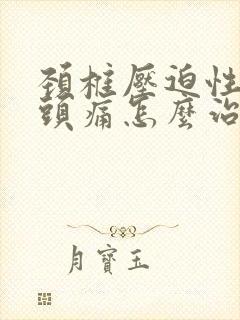 頚椎壓迫性
頭痛怎麼治
月寶玉